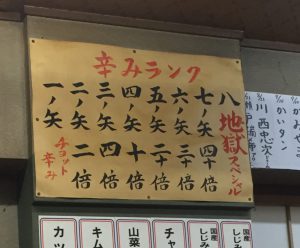 辛みランク
八 地獄スペシャル
七ノ矢 四十倍
六ノ矢 三十倍
五ノ矢 二十倍
四ノ矢 十倍
三ノ矢 四倍
二ノ矢 二倍
一ノ矢 チョット辛み
かみや
かいタン
川西忠次
国産
しじみ
国産
しじみ
チャ
山菜
キム
カッ